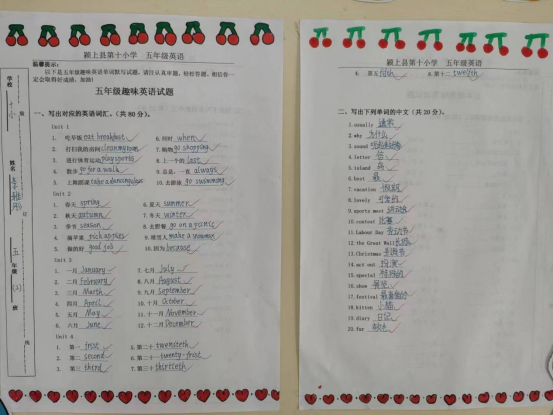 颍上县第十小学 五年级英语
温馨提示：
以下是五年级趣味英语单词默写试题，请注认真审题，轻松答题，相信你一定会取得好成绩，加油！
五年级趣味英语试题
一、写出对应的英语词汇。（共 80 分）。
Unit 1
1. 吃早饭 eat breakfast 6. 何时 when
2. 打扫我的房间 clean my room 7. 购物 go shopping
3. 进行体育运动 play sports 8. 上一个的 last
4. 散步 go for a walk 9. 总是；一直 always
5. 上舞蹈课 take a dancing class 10. 去游泳 go swimming
Unit 2
1. 春天 spring 6. 夏天 summer
2. 秋天 autumn 7. 冬天 winter
3. 季节 season 8. 去野餐 go on a picnic
4. 摘苹果 pick apples 9. 堆雪人 make a snowman
5. 做的好 good job 10. 因为 because
Unit 3
1. 一月 January 7. 七月 July
2. 二月 February 8. 八月 August
3. 三月 March 9. 九月 September
4. 四月 April 10. 十月 October
5. 五月 May 11. 十一月 November
6. 六月 June 12. 十二月 December
Unit 4
1. 第一 frist 5. 第二十 twentieth
2. 第二 second 6. 第二十一 twenty-frist
3. 第三 third 7. 第三十 thirtieth
学校 十小
姓名
五 年级 (2) 班
颍上县第十小学 五年级英语
4. 第五 fifth 8. 第十二 twelfth
二、写出下列单词的中文（共 20 分）。
1.usually 通常
2.why 为什么
3.sound
4.letter 信
5.island 岛
6.best 最
7.vacation 假期
8.lovely 可爱的
9.sports meet 运动会
10.contest 比赛
11.Labour Day 劳动节
12.the Great Wall 长城
13.Christmas 圣诞节
14.act out 扮演
15.special 特殊的
16.show
17.festival
18.kitten 小猫
19.diary 日记
20.fur 软毛